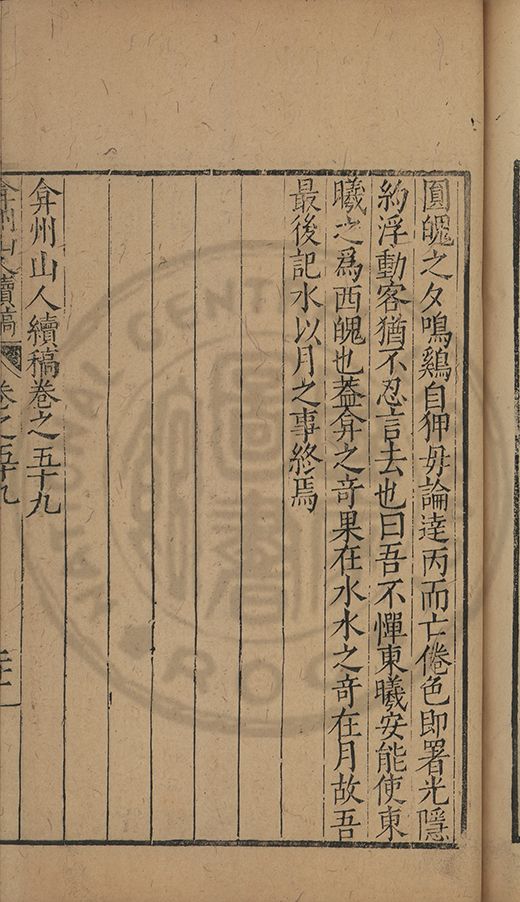 圓魄之夕鳴鷄自狎毋論逹丙而亡倦色即署光隱
約浮動客猶不忍言去也曰吾不憚東曦安能使東
曦之爲西魄也葢弇之竒果在水水之竒在月故吾
最後記水以月之事終焉
弇州山人續稿卷之五十九
弇州山人續稿 卷之五十九